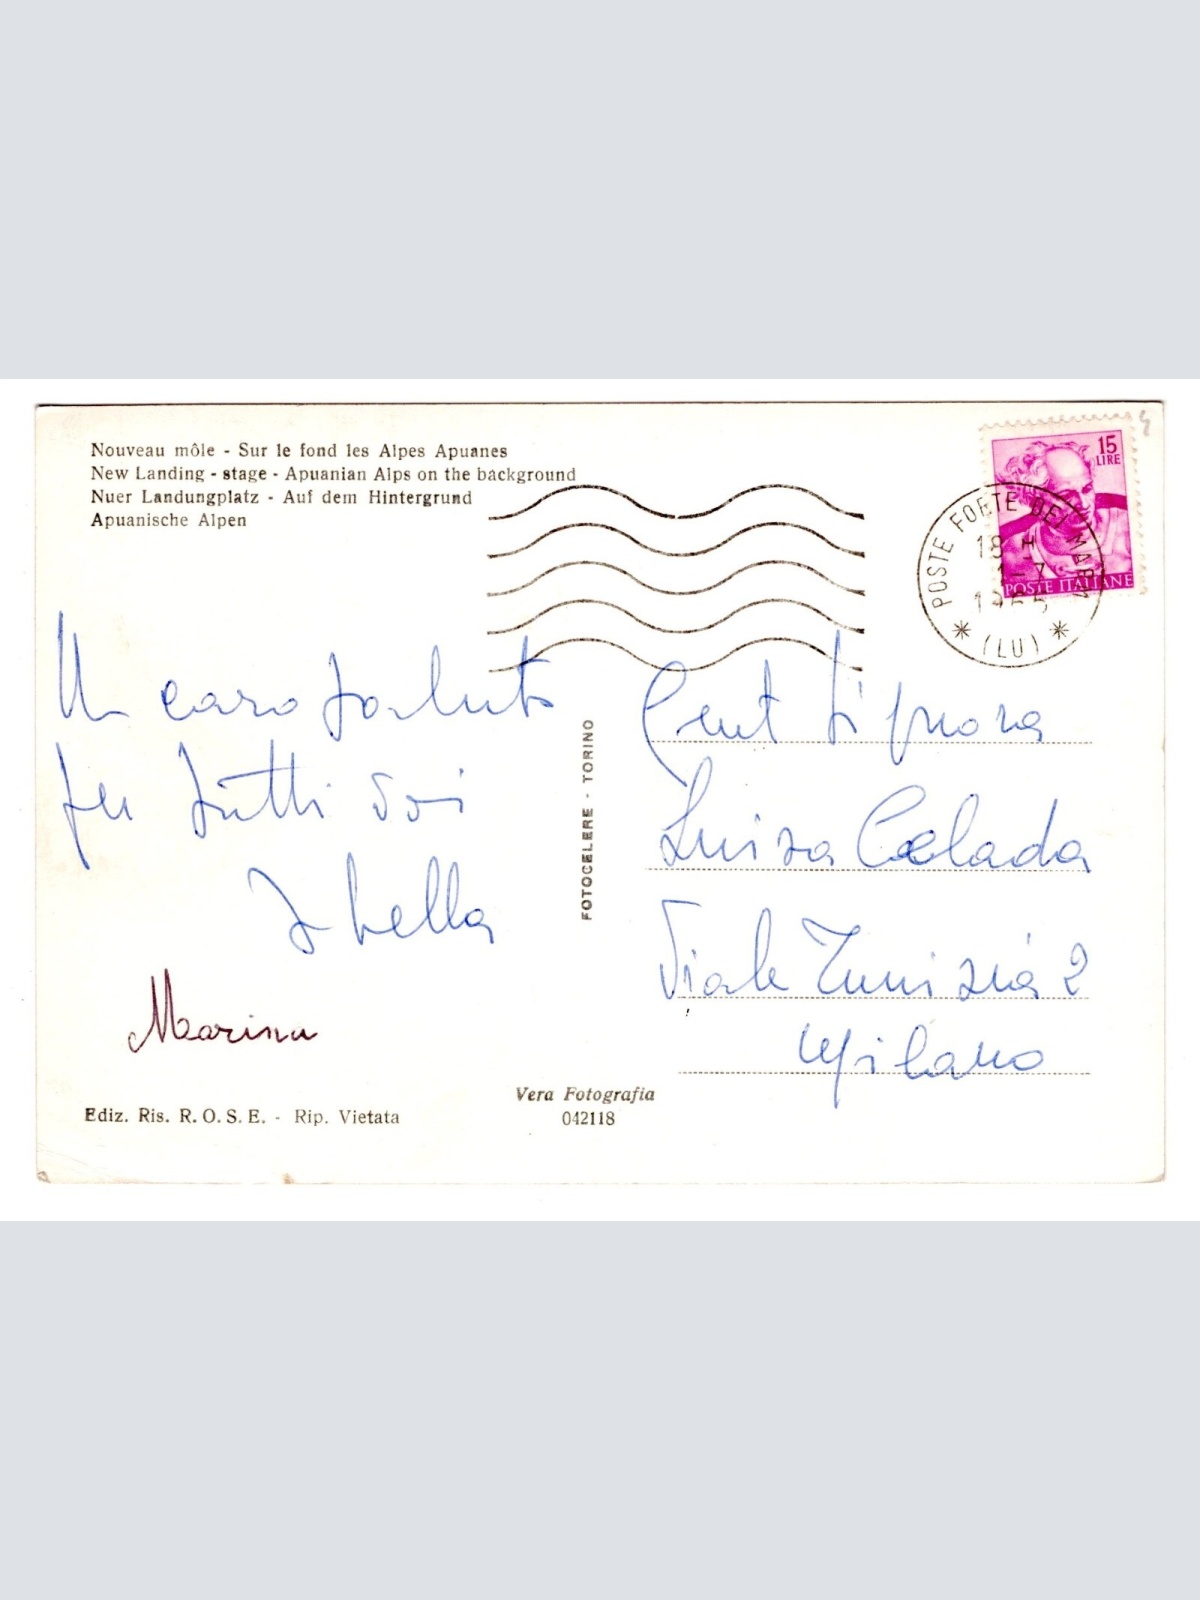 Nouveau môle - Sur le fond les Alpes Apuanes
New Landing - stage - Apuanian Alps on the background
Nuer Landungplatz - Auf dem Hintergrund
Apuanische Alpen
15
LIRE
POSTE ITALIANE
POSTE FORTE DEI MARMI
18 H
1-7
1965
* (LU) *
Un caro saluto
per tutti voi
Marina
FOTOCELERE - TORINO
Gent Signora
Luisa Celada
Viale Tunisia 2
Milano
Vera Fotografia
042118
Ediz. Ris. R. O. S. E. - Rip. Vietata